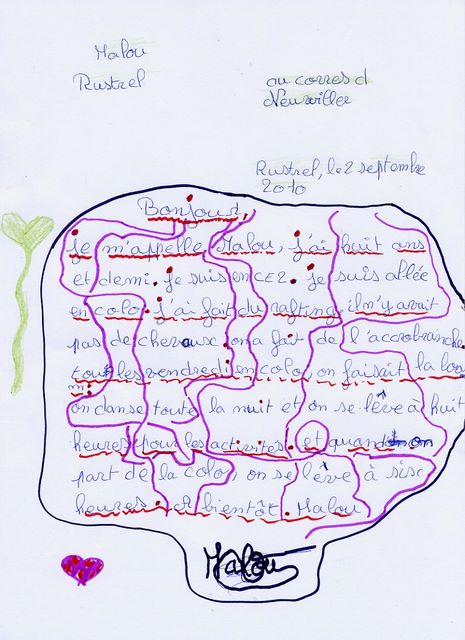 Malou
Rustrel
au corres d
Neuwiller
Rustrel, le 2 septembre
2010
Bonjour,
je m'appelle Malou, j'ai huit ans
et demi. je suis en CE2. je suis allée
en colo. j'ai fait du rafting, il n'y avait
pas de chevaux, on a fait de l'accrobranche.
tous les vendredi en colo, on faisait la boo
m:
on danse toute la nuit et on se lève à huit
heures pour les activités. et quand on
part de la colo, on se lève à six
heures. A bientôt. Malou
Malou